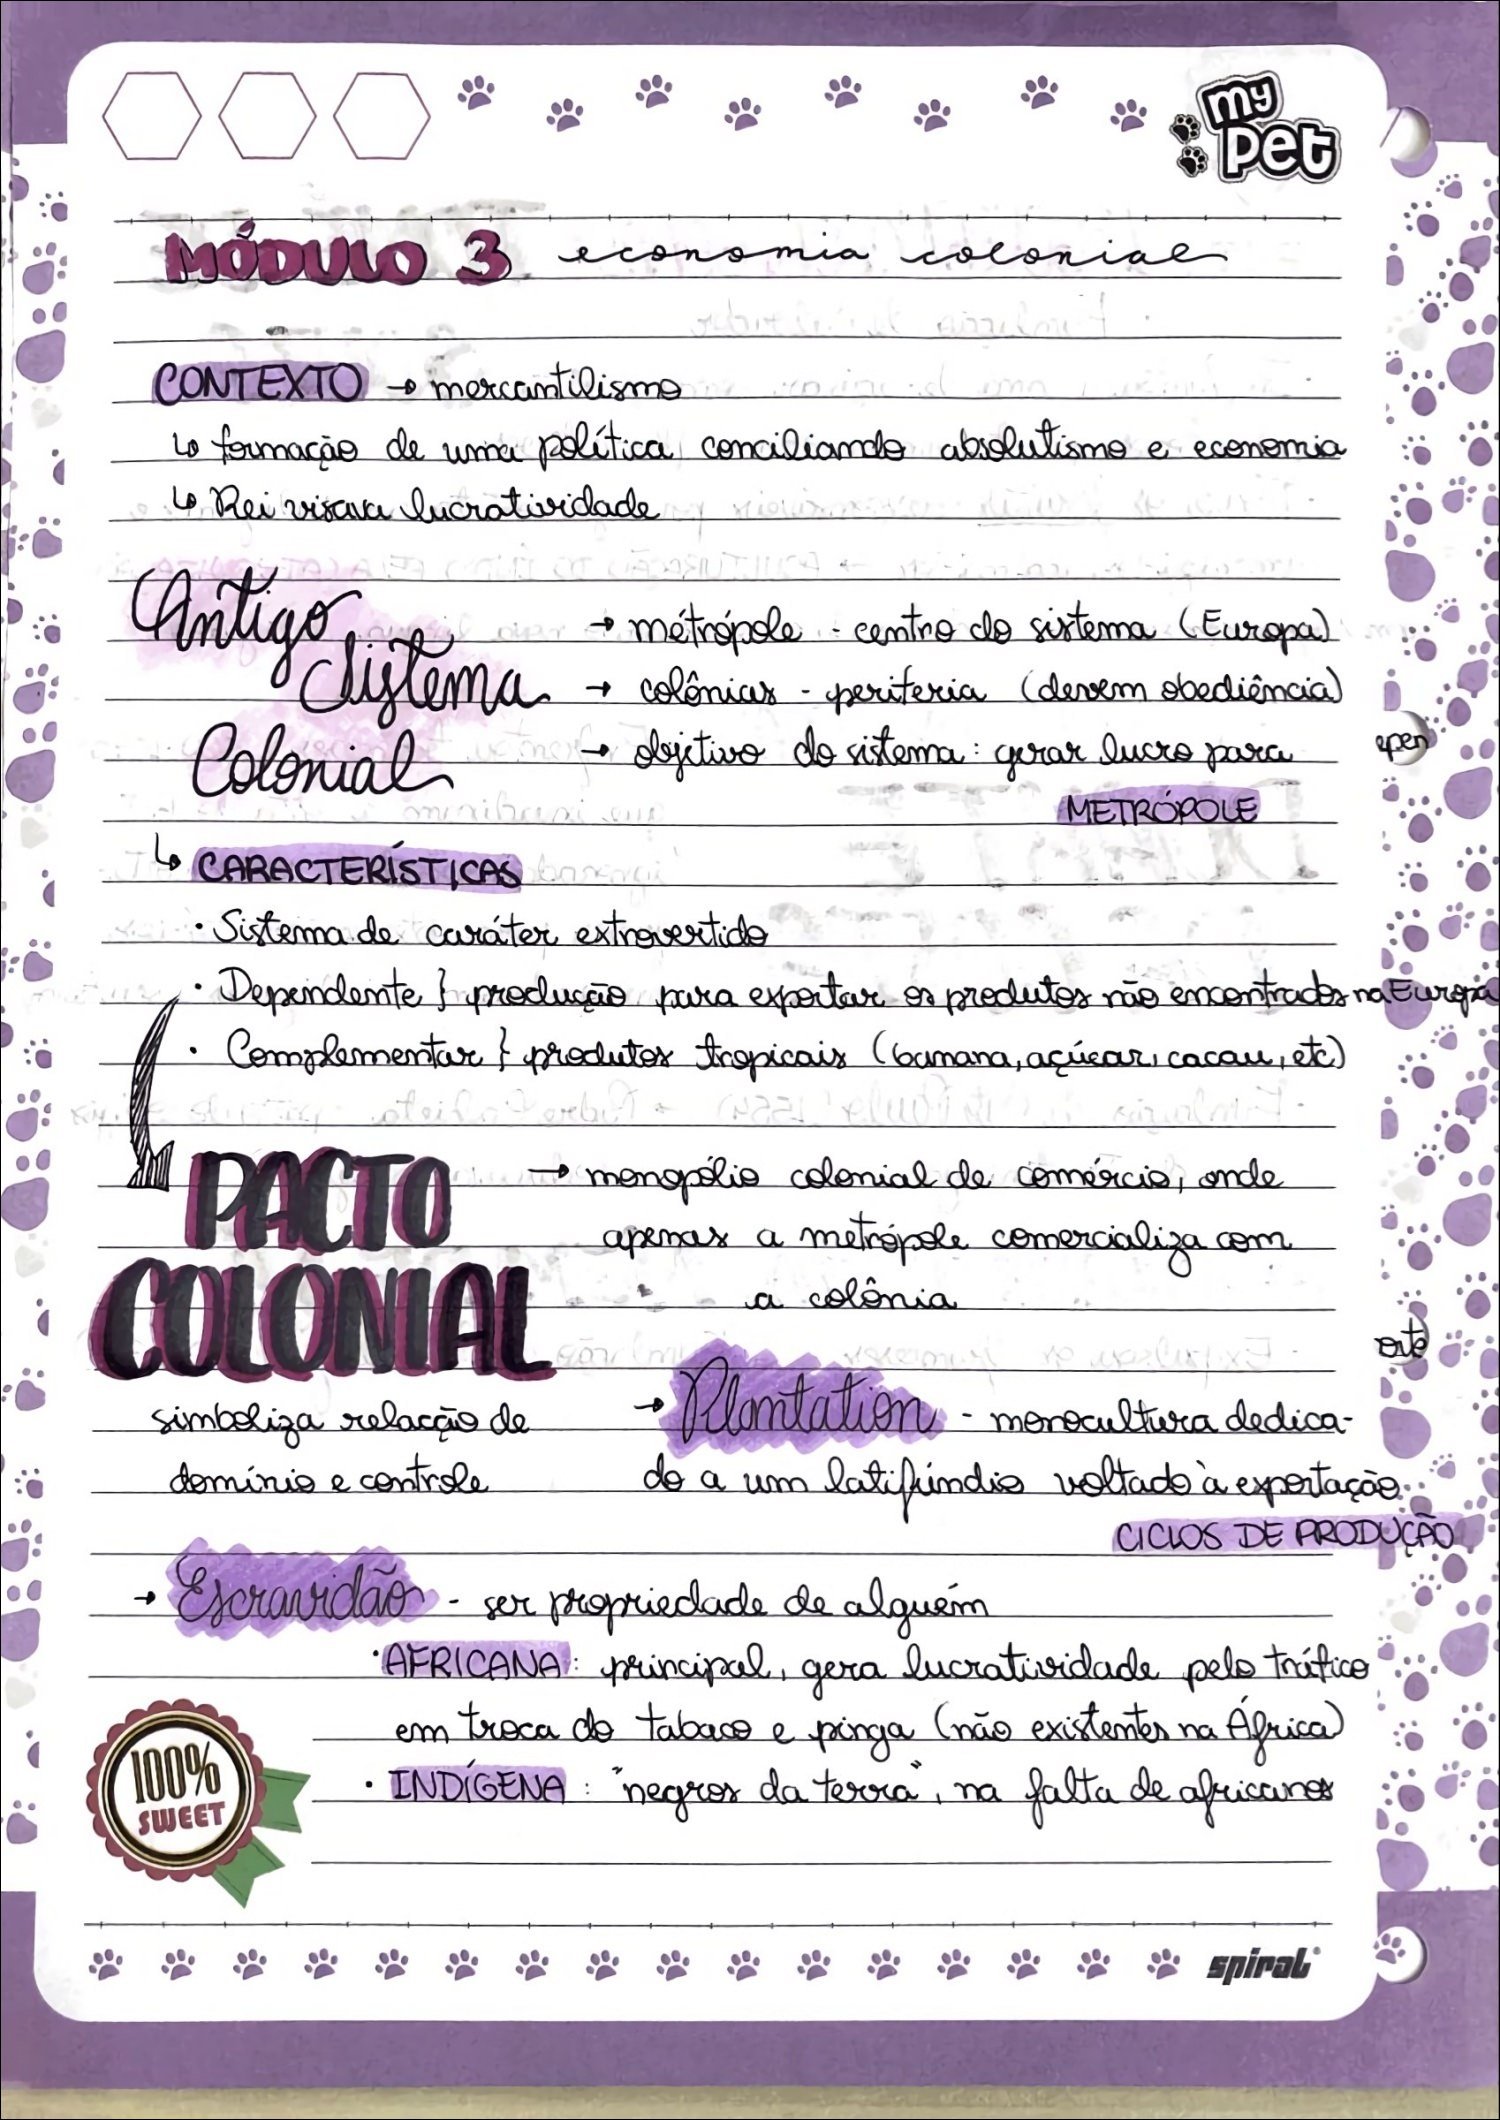 my
pet
MÓDULO 3 economia colonial
CONTEXTO → mercantilismo
↳ formação de uma política conciliando absolutismo e economia
↳ Rei visava lucratividade
Antigo
Sistema
Colonial
→ métrópole - centro do sistema (Europa)
→ colônias - periferia (devem obediência)
→ objetivo do sistema: gerar lucro para
METRÓPOLE
↳ CARACTERÍSTICAS
· Sistema de caráter extrovertido
· Dependente } produção para exportar os produtos não encontrados na Europa
· Complementar } produtos tropicais (banana, açúcar, cacau, etc)
PACTO
COLONIAL
→ monopólio colonial de comércio, onde
apenas a metrópole comercializa com
a colônia
simboliza relacção de
domínio e controle
→ Plantation - monocultura dedica-
do a um latifúndio voltado à exportação
CICLOS DE PRODUÇÃO
→ Escravidão - ser propriedade de alguém
· AFRICANA: principal, gera lucratividade pelo tráfico
em troca do tabaco e pinga (não existentes na África)
· INDÍGENA: "negros da terra", na falta de africanos
100%
SWEET
spiral